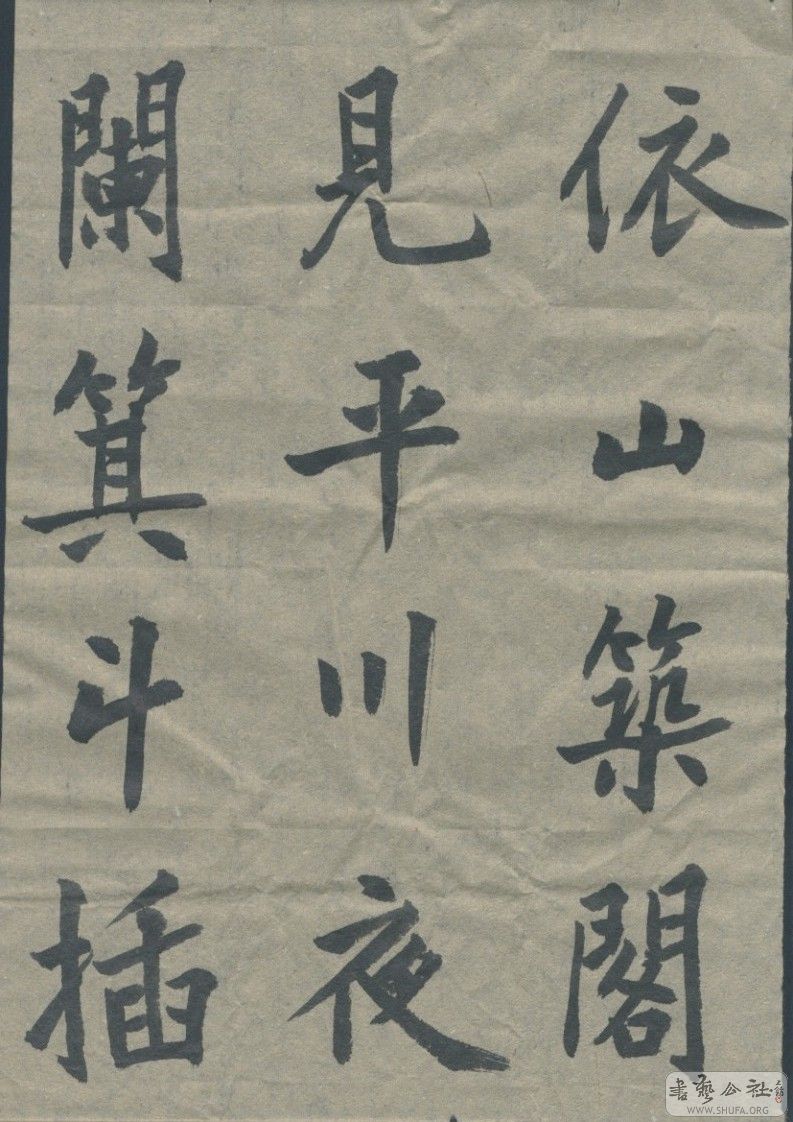 依山築閣
見平川夜
闌箕斗插
書藝公社
WWW.SHUFA.ORG